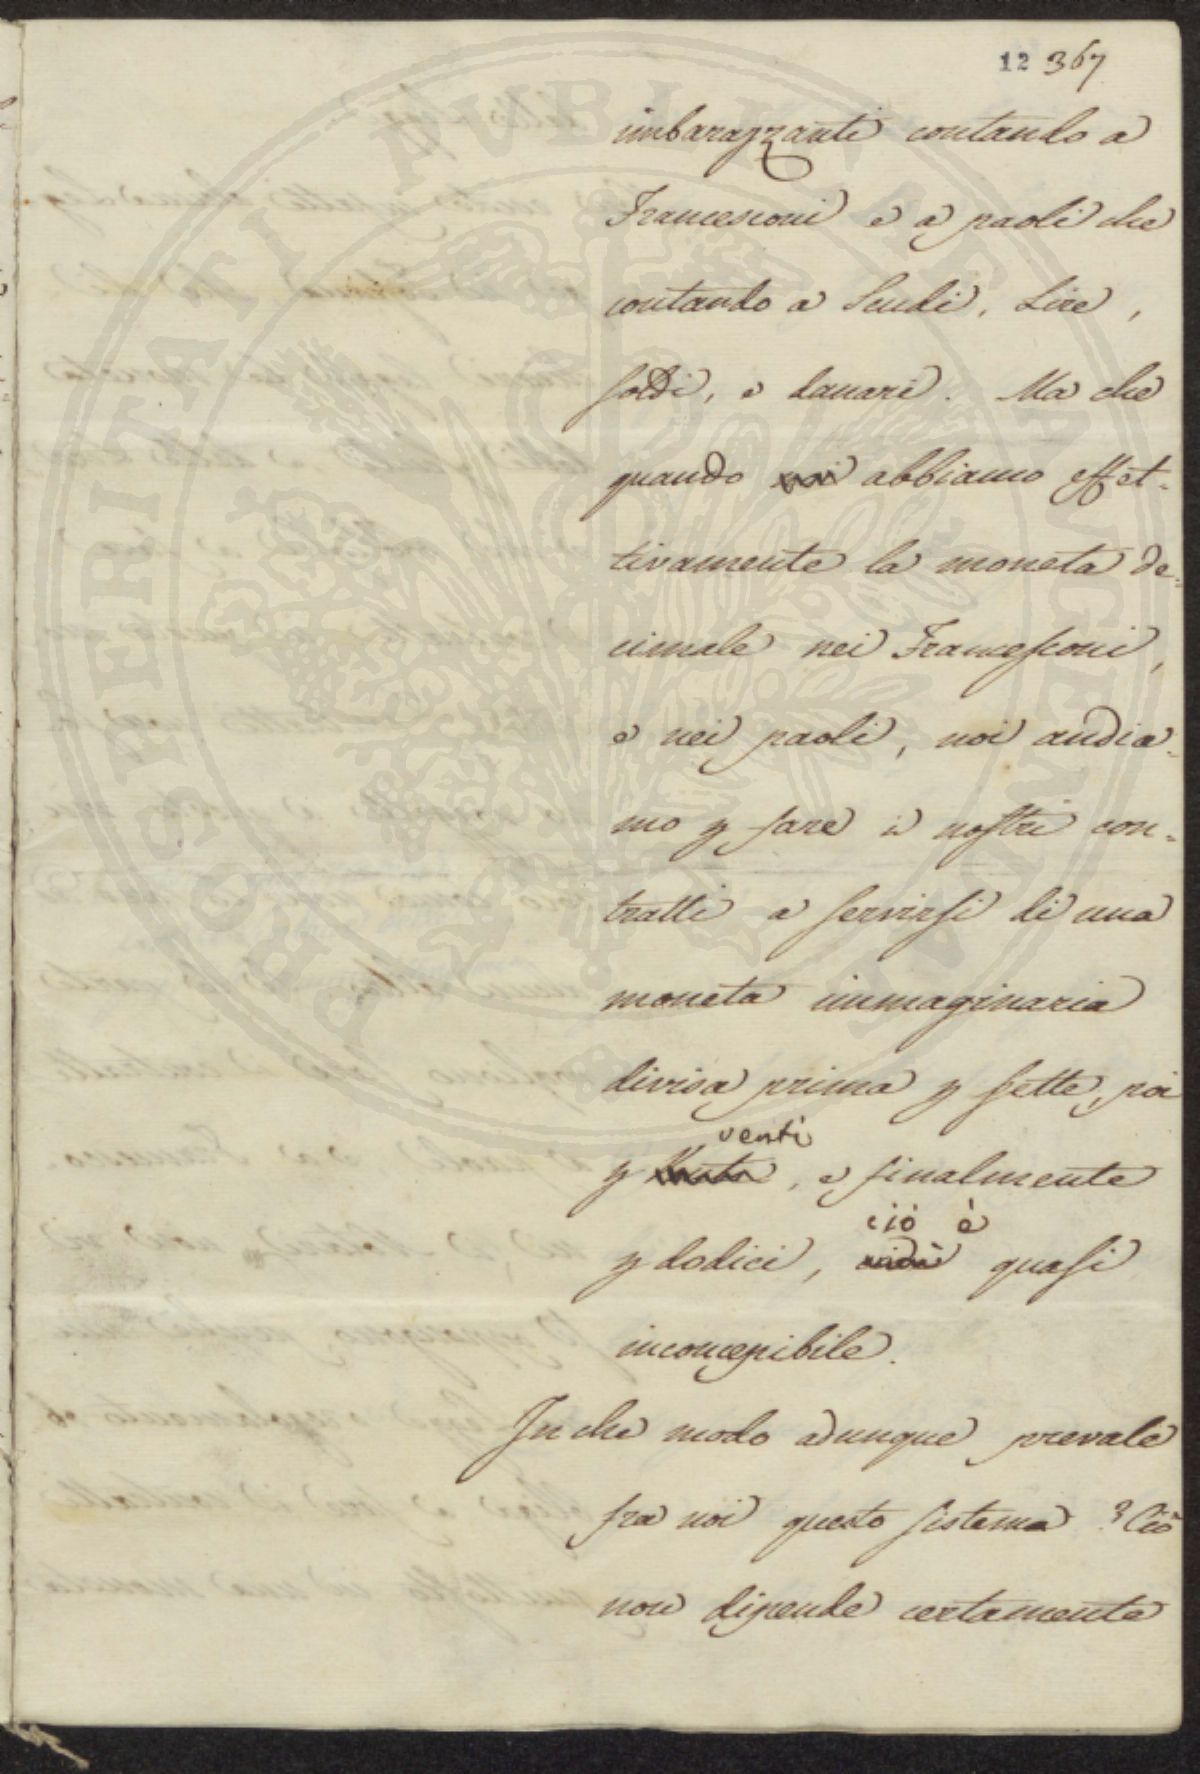 12 367
imbarazzanti contando a
Francesconi e a paoli che
contando a Scudi, Lire,
soldi, e danari. Ma che
quando noi abbiamo effet-
tivamente la moneta de-
cimale nei Francesconi,
e nei paoli, noi andia-
mo p fare i nostri con-
tratti a servirsi di una
moneta immaginaria
divisa prima p sette, poi
venti
p , e finalmente
ciò è
p dodici, quasi
inconcepibile.
In che modo adunque prevale
fra noi questo sistema? Ciò
non dipende certamente
PROSPERITATI PUBLICAE AUGENDAE